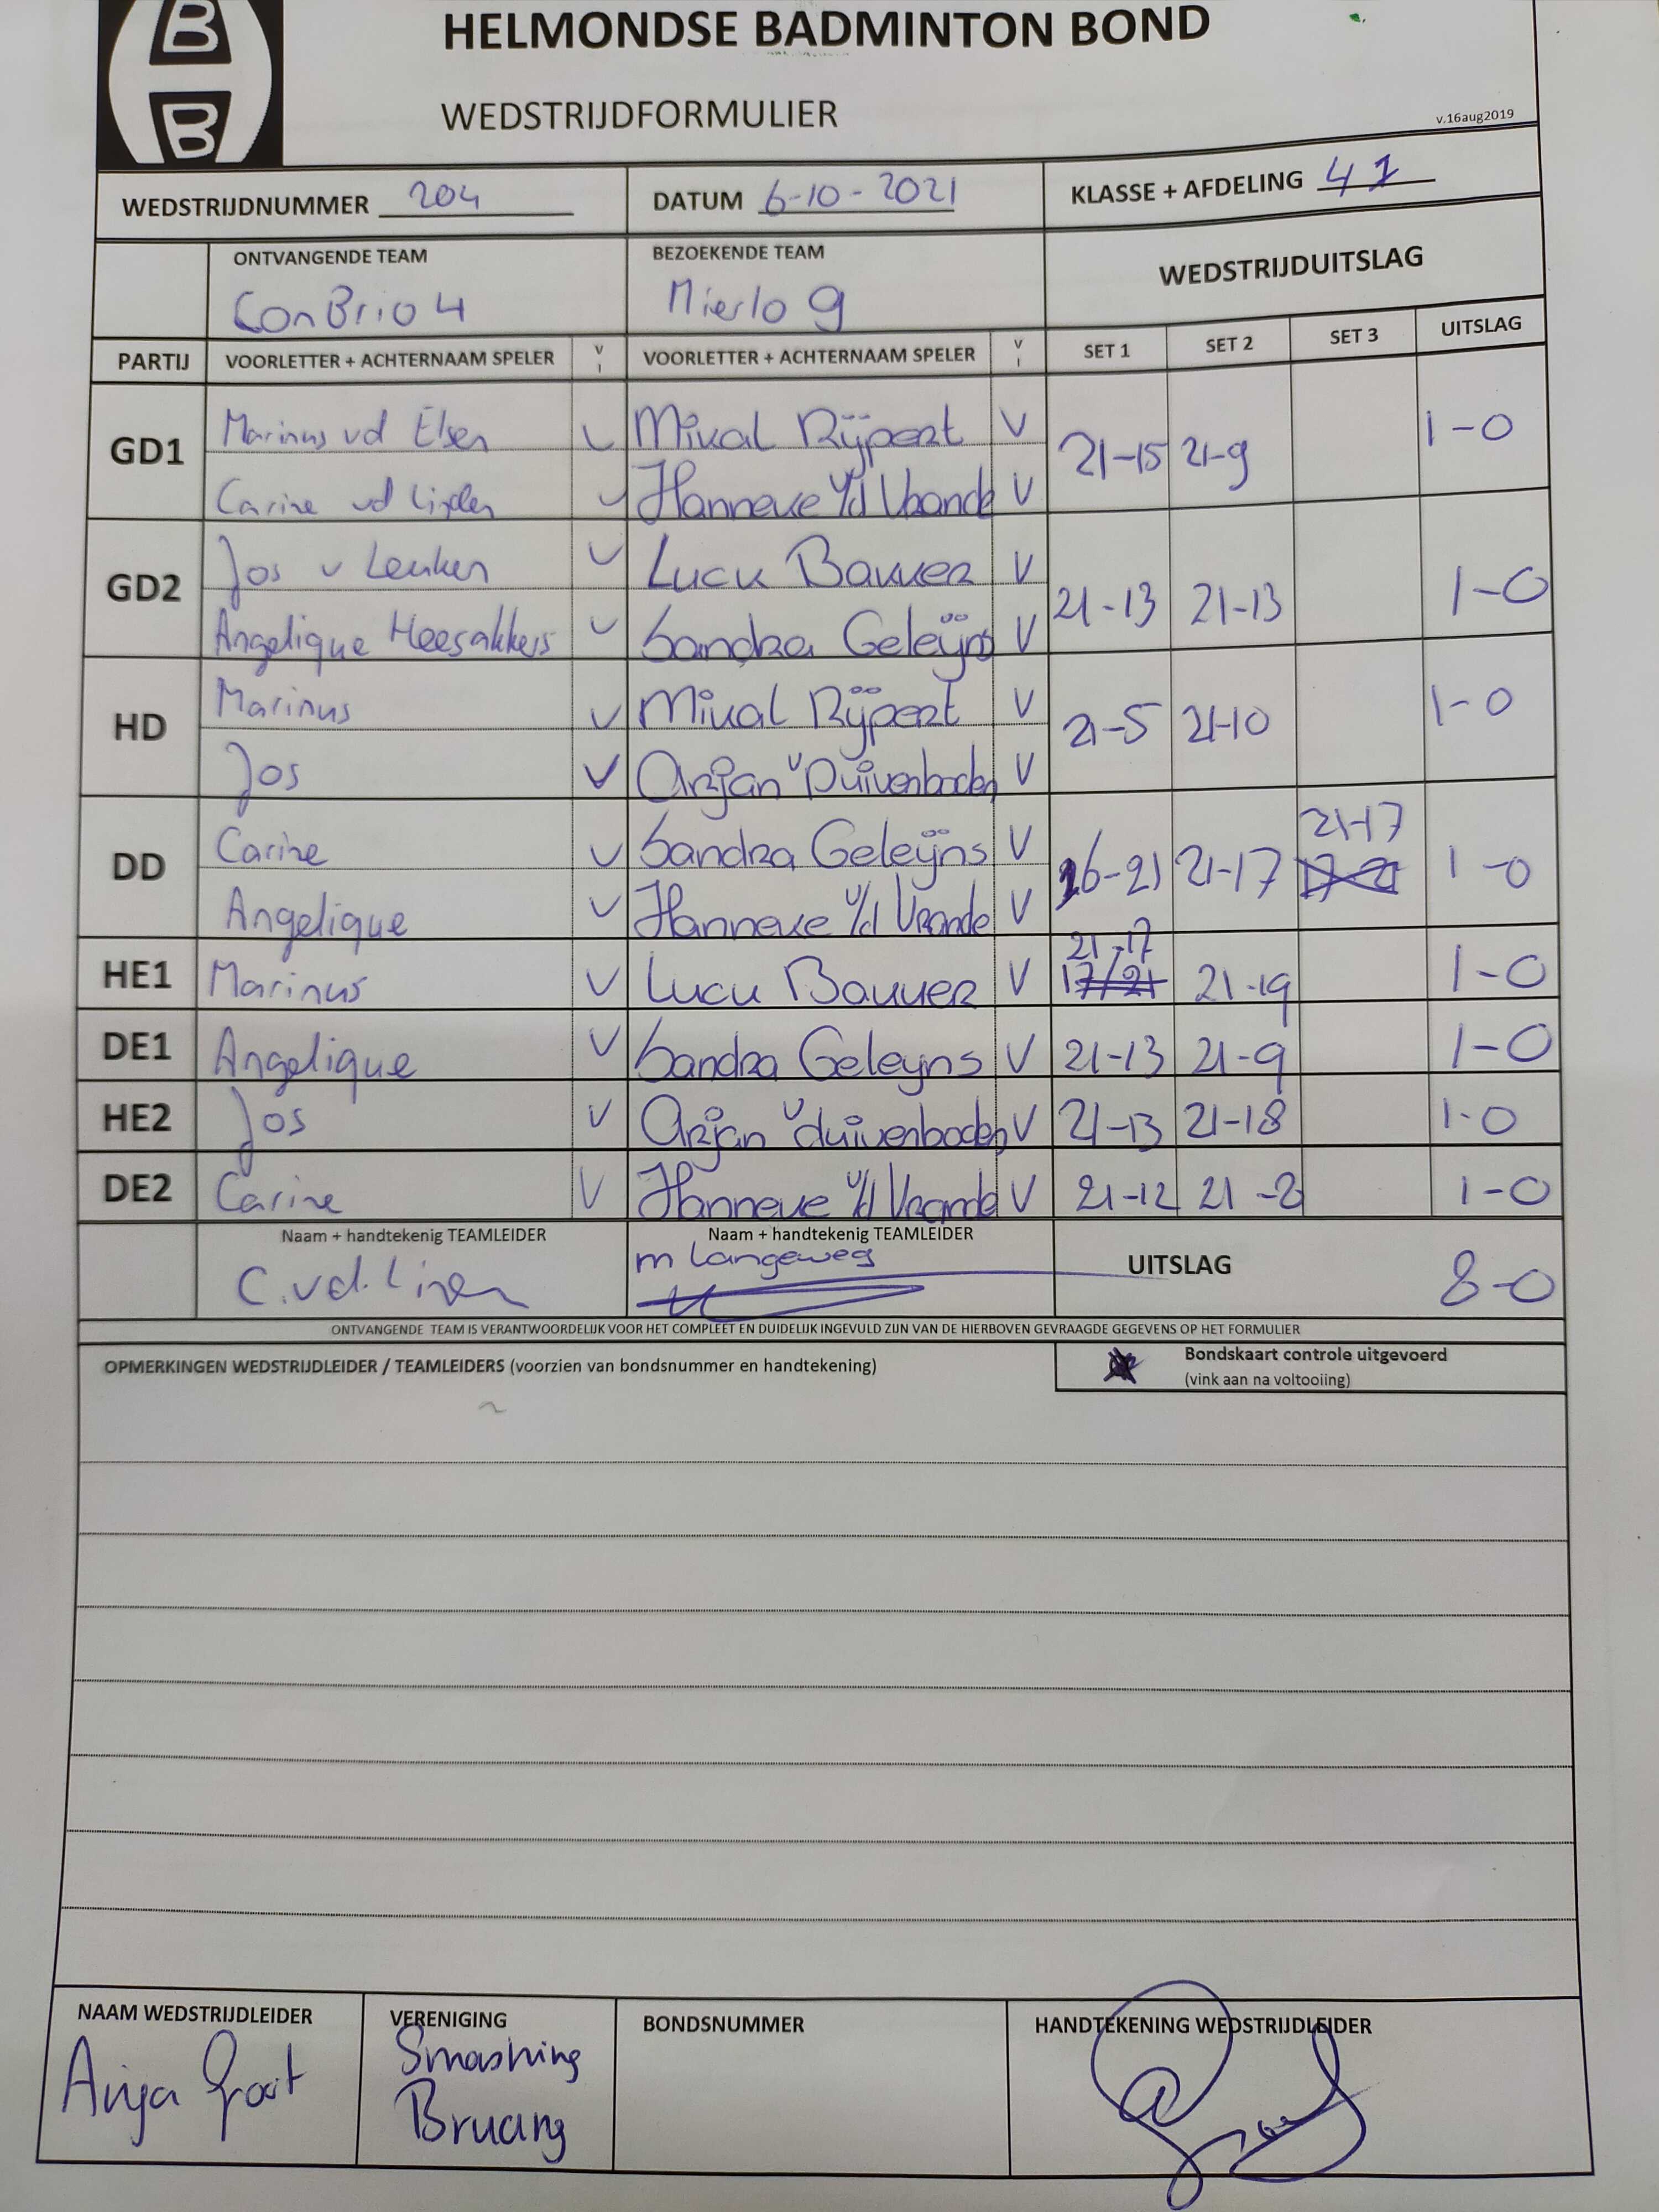 B
B
HELMONDSE BADMINTON BOND
WEDSTRIJDFORMULIER
v.16aug2019
WEDSTRIJDNUMMER 204 DATUM 6-10-2021 KLASSE + AFDELING 4 1
ONTVANGENDE TEAM BEZOEKENDE TEAM WEDSTRIJDUITSLAG
ConBrio 4 Mierlo 9
PARTIJ VOORLETTER + ACHTERNAAM SPELER V I VOORLETTER + ACHTERNAAM SPELER V I SET 1 SET 2 SET 3 UITSLAG
GD1 Marinus vd Elsen V Mikal Rijpert V 21-15 21-9 1-0
Carine vd Linden V Hanneke v/d Vrande V
GD2 Jos v Leuken V Luck Bakker V 21-13 21-13 1-0
Angelique Heesakkers V Sandra Geleijns V
HD Marinus V Mikal Rijpert V 21-5 21-10 1-0
Jos V Arjan v Duivenboden V
DD Carine V Sandra Geleijns V 16-21 21-17 21-17 1-0
Angelique V Hanneke v/d Vrande V
21-17
HE1 Marinus V Luck Bakker V 17/21 21-19 1-0
DE1 Angelique V Sandra Geleyns V 21-13 21-9 1-0
HE2 Jos V Arjan v duivenboden V 21-13 21-18 1-0
DE2 Carine V Hanneke v/d Vrande V 21-12 21-2 1-0
Naam + handtekenig TEAMLEIDER Naam + handtekenig TEAMLEIDER UITSLAG 8-0
C.vd.Linden m Langeweg
ONTVANGENDE TEAM IS VERANTWOORDELIJK VOOR HET COMPLEET EN DUIDELIJK INGEVULD ZIJN VAN DE HIERBOVEN GEVRAAGDE GEGEVENS OP HET FORMULIER
OPMERKINGEN WEDSTRIJDLEIDER / TEAMLEIDERS (voorzien van bondsnummer en handtekening) Bondskaart controle uitgevoerd
(vink aan na voltooiing)
NAAM WEDSTRIJDLEIDER VERENIGING BONDSNUMMER HANDTEKENING WEDSTRIJDLEIDER
Anja Groot Smashing
Bruang